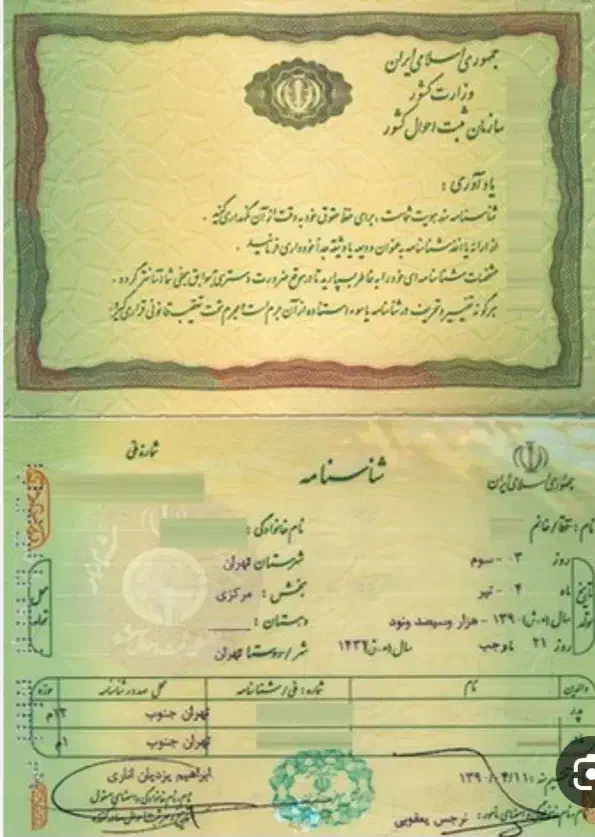 جمهوری اسلامی ایران
وزارت کشور
سازمان ثبت احوال کشور
یادآوری :
شناسنامه سند هویت شماست ، برای حفظ حقوق خود به دقت از آن نگهداری کنید .
از ارائه یا اخذ شناسنامه به عنوان ودیعه یا وثیقه جداً خودداری فرمائید .
مشخصات شناسنامه‌ای خود را به خاطر بسپارید تا در موقع ضرورت دسترسی به سوابق سجلی شما آسانتر گردد .
هرگونه تغییر و تحریف در شناسنامه یا سوء استفاده از آن جرم است و مجرم تحت تعقیب قانونی قرار می‌گیرد .
جمهوری اسلامی ایران
شناسنامه
شماره ملی
نام : آقا/خانم
نام خانوادگی :
تاریخ تولد
روز ۰۳ - سوم
ماه ۰۴ - تیر
سال (ه.ش) ۱۳۹۰ - هزار و سیصد و نود
روز ۲۱ ماه رجب سال (ه.ق) ۱۴۳۲
محل تولد
شهرستان تهران
بخش : مرکزی
دهستان :
شهر/روستا تهران
والدین نام شماره : ملی/شناسنامه محل صدور شناسنامه حوزه
پدر تهران جنوب ۱۳م
مادر تهران جنوب ۱م
تنظیم سند : ۱۳۹۰/۰۴/۱۱
ابراهیم یزدیان اناری
نام، نام خانوادگی و امضای مسئول
نام، نام خانوادگی و امضای مأمور : نرجس یعقوبی